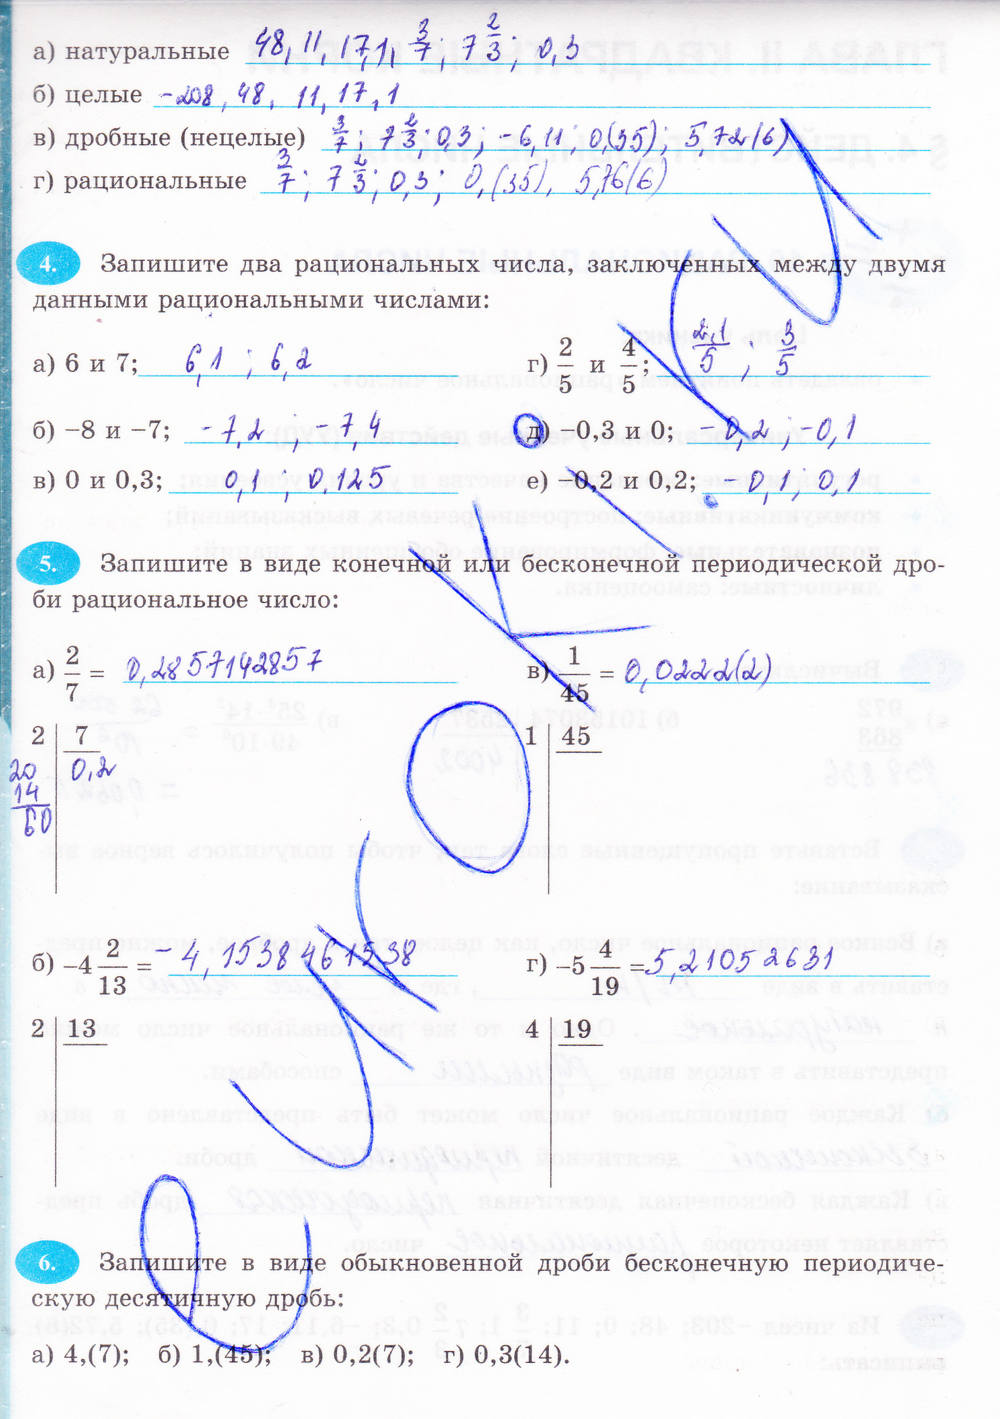 а) натуральные 48, 11, 17, 1, 3/7; 7 2/3; 0,3
б) целые -208, 48, 11, 17, 1
в) дробные (нецелые) 3/7; 7 2/3; 0,3; -6,11; 0,(35); 5,72(6)
г) рациональные 3/7; 7 2/3; 0,3; 0,(35), 5,76(6)
4. Запишите два рациональных числа, заключенных между двумя
данными рациональными числами:
а) 6 и 7; 6,1 ; 6,2
г) 2/5 и 4/5; 2,1/5 ; 3/5
б) −8 и −7; -7,2 ; -7,4
д) −0,3 и 0; -0,2 ; -0,1
в) 0 и 0,3; 0,1 ; 0,125
е) −0,2 и 0,2; -0,1 ; 0,1
5. Запишите в виде конечной или бесконечной периодической дро-
би рациональное число:
а) 2/7 = 0,2857142857
в) 1/45 = 0,0222(2)
2 | 7
20 0,2
14
60
1 | 45
б) −4 2/13 = -4,1538461538
г) −5 4/19 = 5,21052631
2 | 13
4 | 19
6. Запишите в виде обыкновенной дроби бесконечную периодиче-
скую десятичную дробь:
а) 4,(7); б) 1,(45); в) 0,2(7); г) 0,3(14).